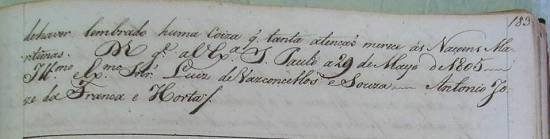 183
dehaver lembrado huma Coiza q. tanta atensaõ merece ás Nacens Ma-
ritimas. D.s g.e a V. Ex.a S. Paulo a 29 de Mayo de 1805
Ill.mo e Ex.mo Snr. Luiz de Vazconcellos e Souza Antonio Jo-
ze da Franca e Horta